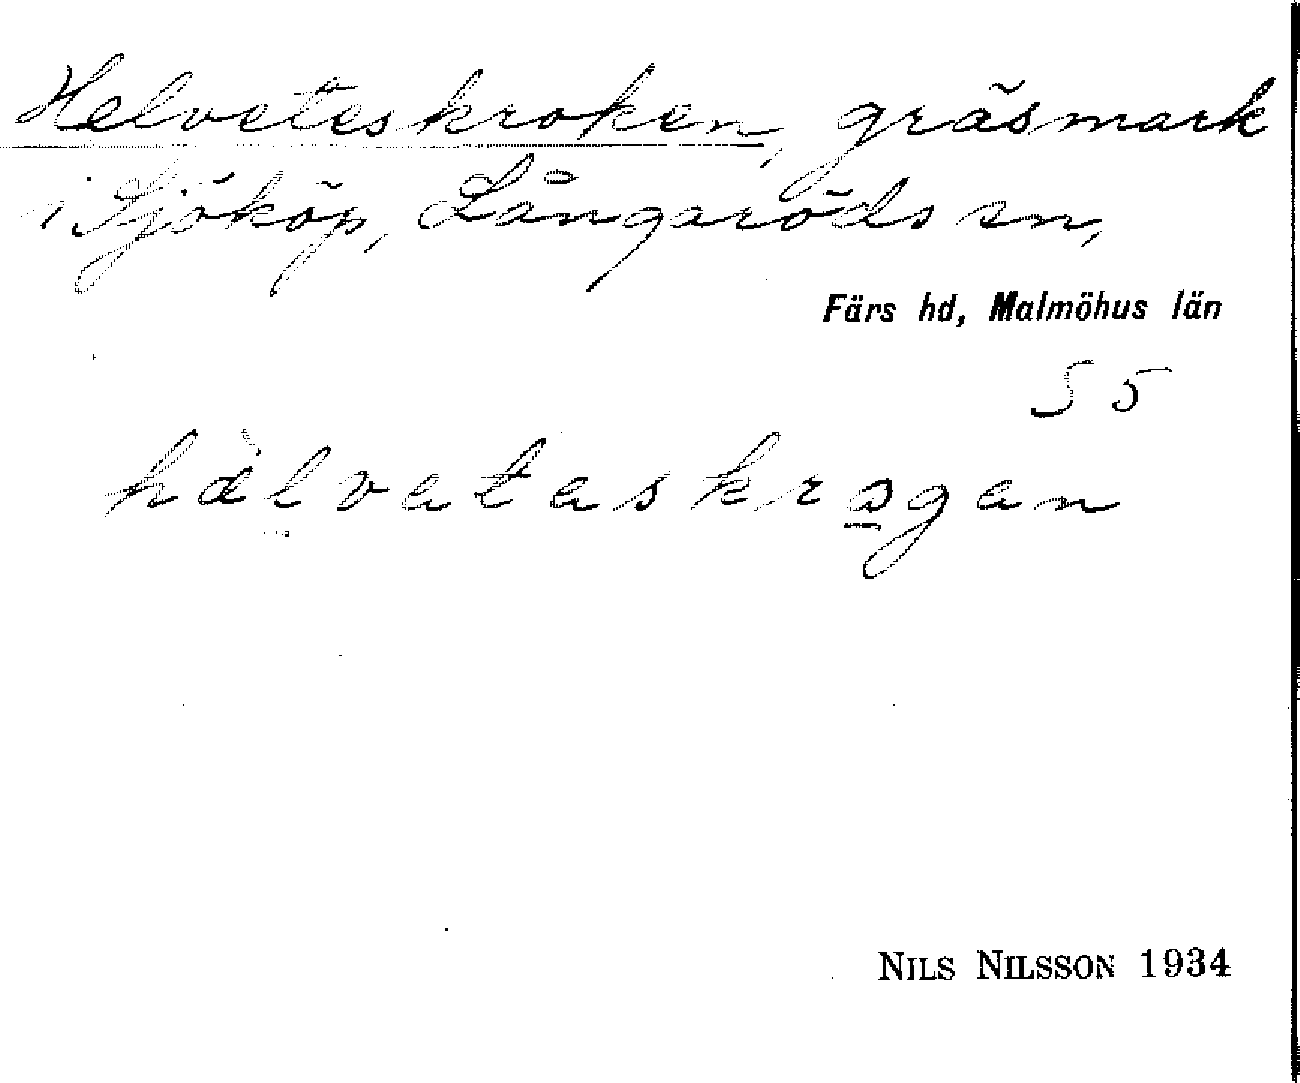 Helveteskroken, gräsmark
i Sjököp, Långaröds sn,
Färs hd, Malmöhus län
S 5
hàlvataskrogan
NILS NILSSON 1934